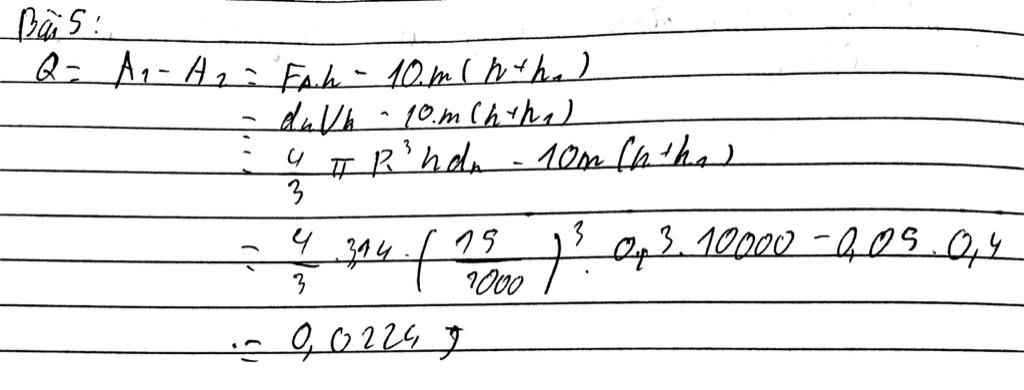 Bài 5:
Q = A₁ - A₂ = F_A.h - 10.m(h+h₁)
= dₙVh - 10.m(h+h₁)
= 4/3 π R³hdₙ - 10m(h+h₁)
= 4/3 . 3,14 . (15/1000)³ . 0,3 . 10000 - 0,05 . 0,4
= 0,0224 J